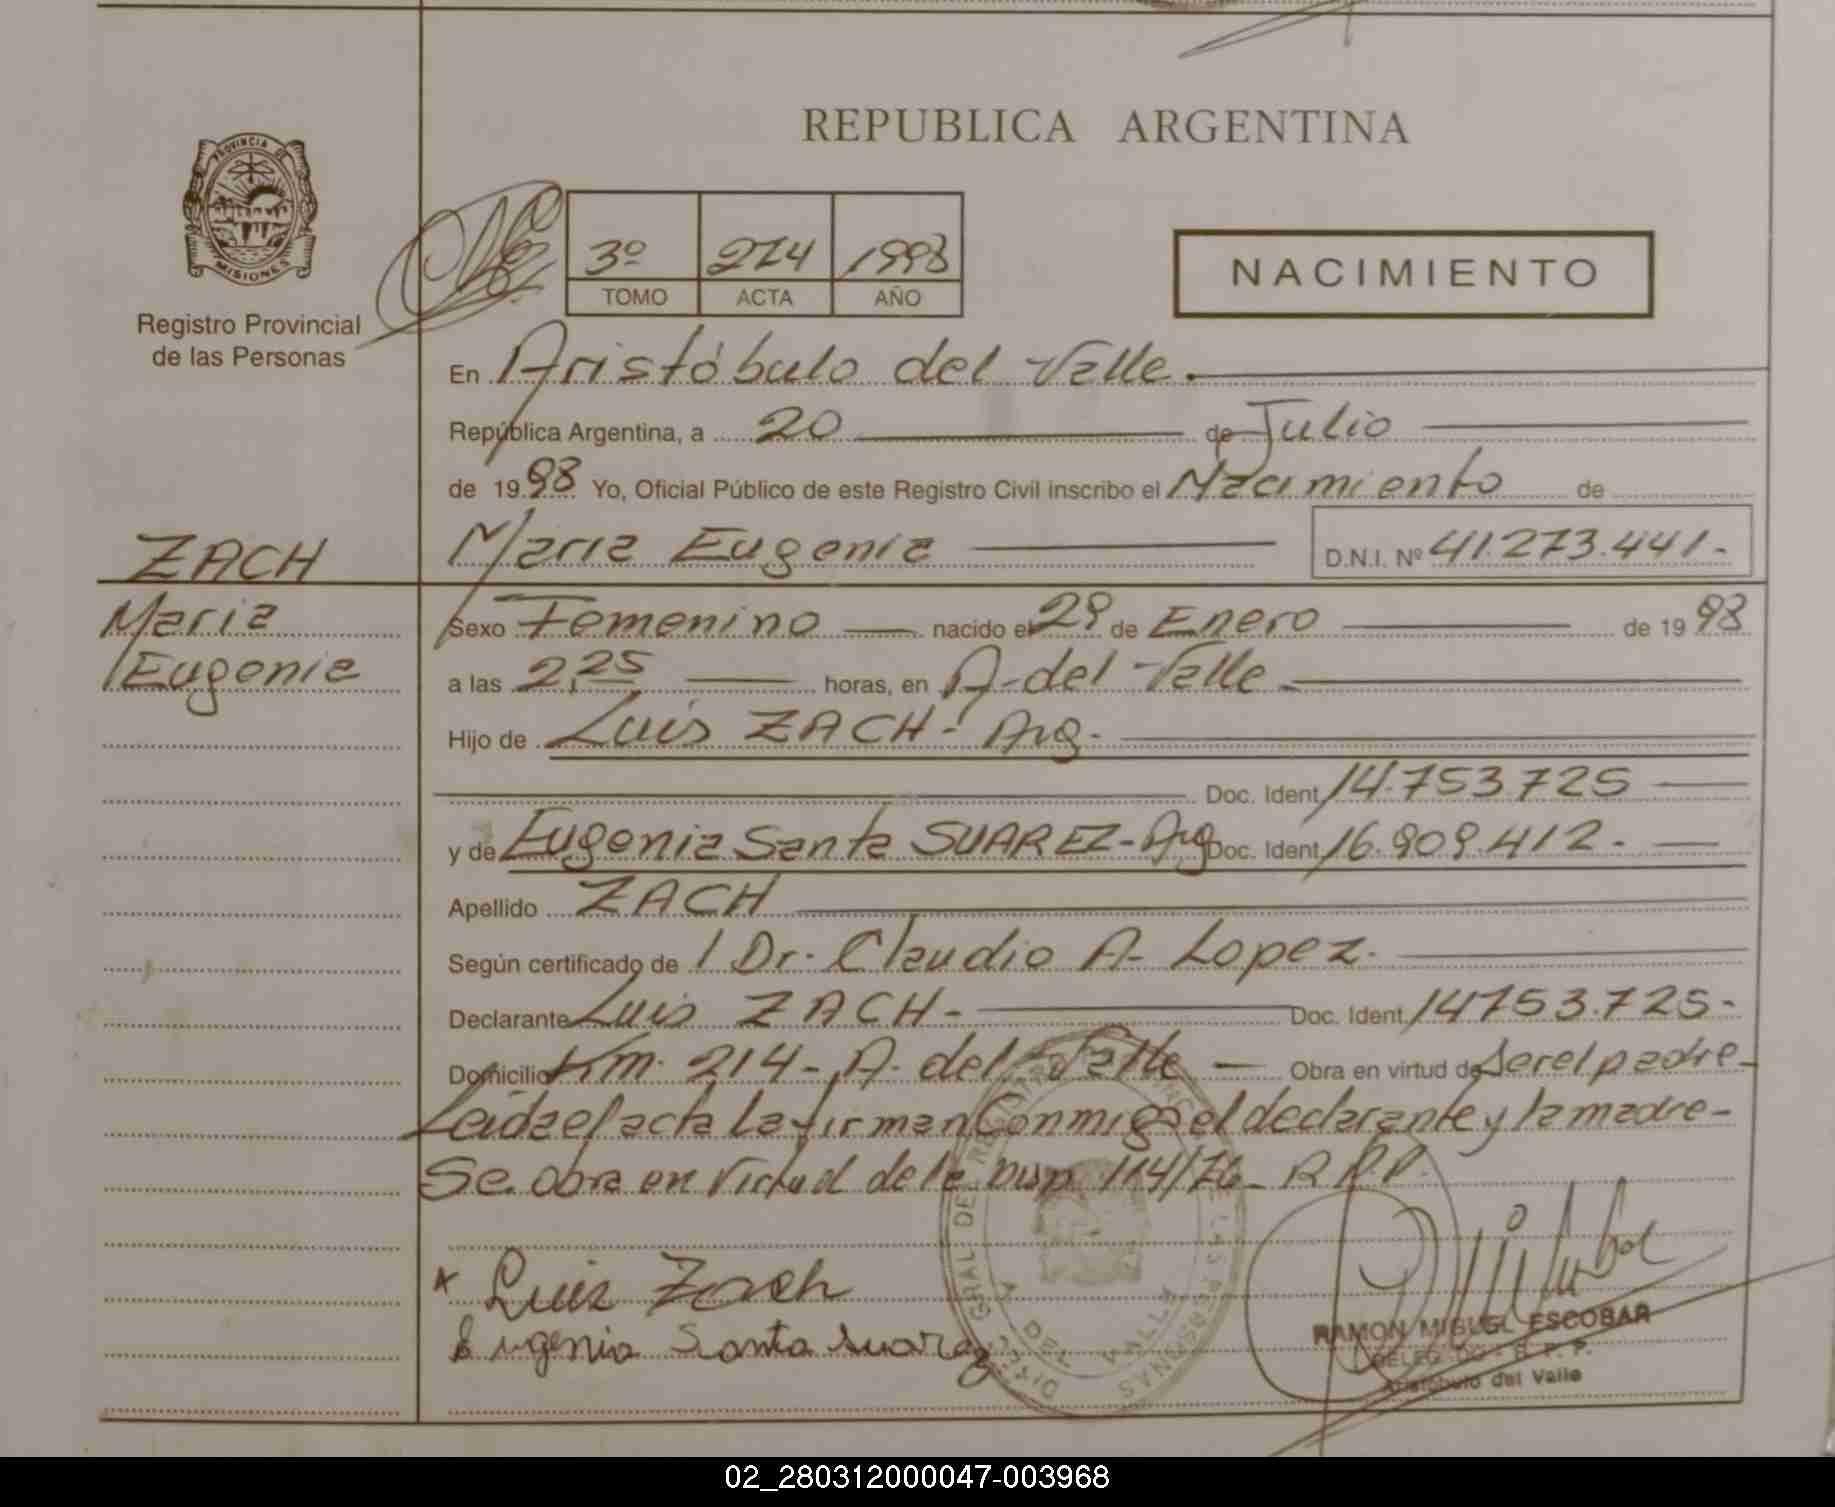 REPUBLICA ARGENTINA
PROVINCIA DE
MISIONES
Registro Provincial
de las Personas
3º 274 1998
TOMO ACTA AÑO
NACIMIENTO
En Aristóbulo del Valle.
República Argentina, a 20 de Julio
de 1998 Yo, Oficial Público de este Registro Civil inscribo el Nacimiento de
ZACH
Maria Eugenia D.N.I. Nº 41.273.441.-
Maria
Eugenia
Sexo Femenino nacido el 29 de Enero de 1998
a las 2,25 horas, en A. del Valle
Hijo de Luis ZACH - Arg.
Doc. Ident 14.753.725
y de Eugenia Santa SUAREZ - Arg Doc. Ident 16.909.412.-
Apellido ZACH
Según certificado de / Dr. Claudio A. Lopez.
Declarante Luis ZACH - Doc. Ident. 14753.725-
Domicilio Km. 214 - A. del Valle - Obra en virtud de ser el padre-
Leida el acta la firman Conmigo el declarante y la madre-
Se obra en Virtud de la Disp. 114/76 - R.P.P.
Luis Zach
Eugenia Santa Suarez
RAMON MIGUEL ESCOBAR
DELEGADO - R. P. P.
Aristóbulo del Valle
A DEL VALLE
02_280312000047-003968